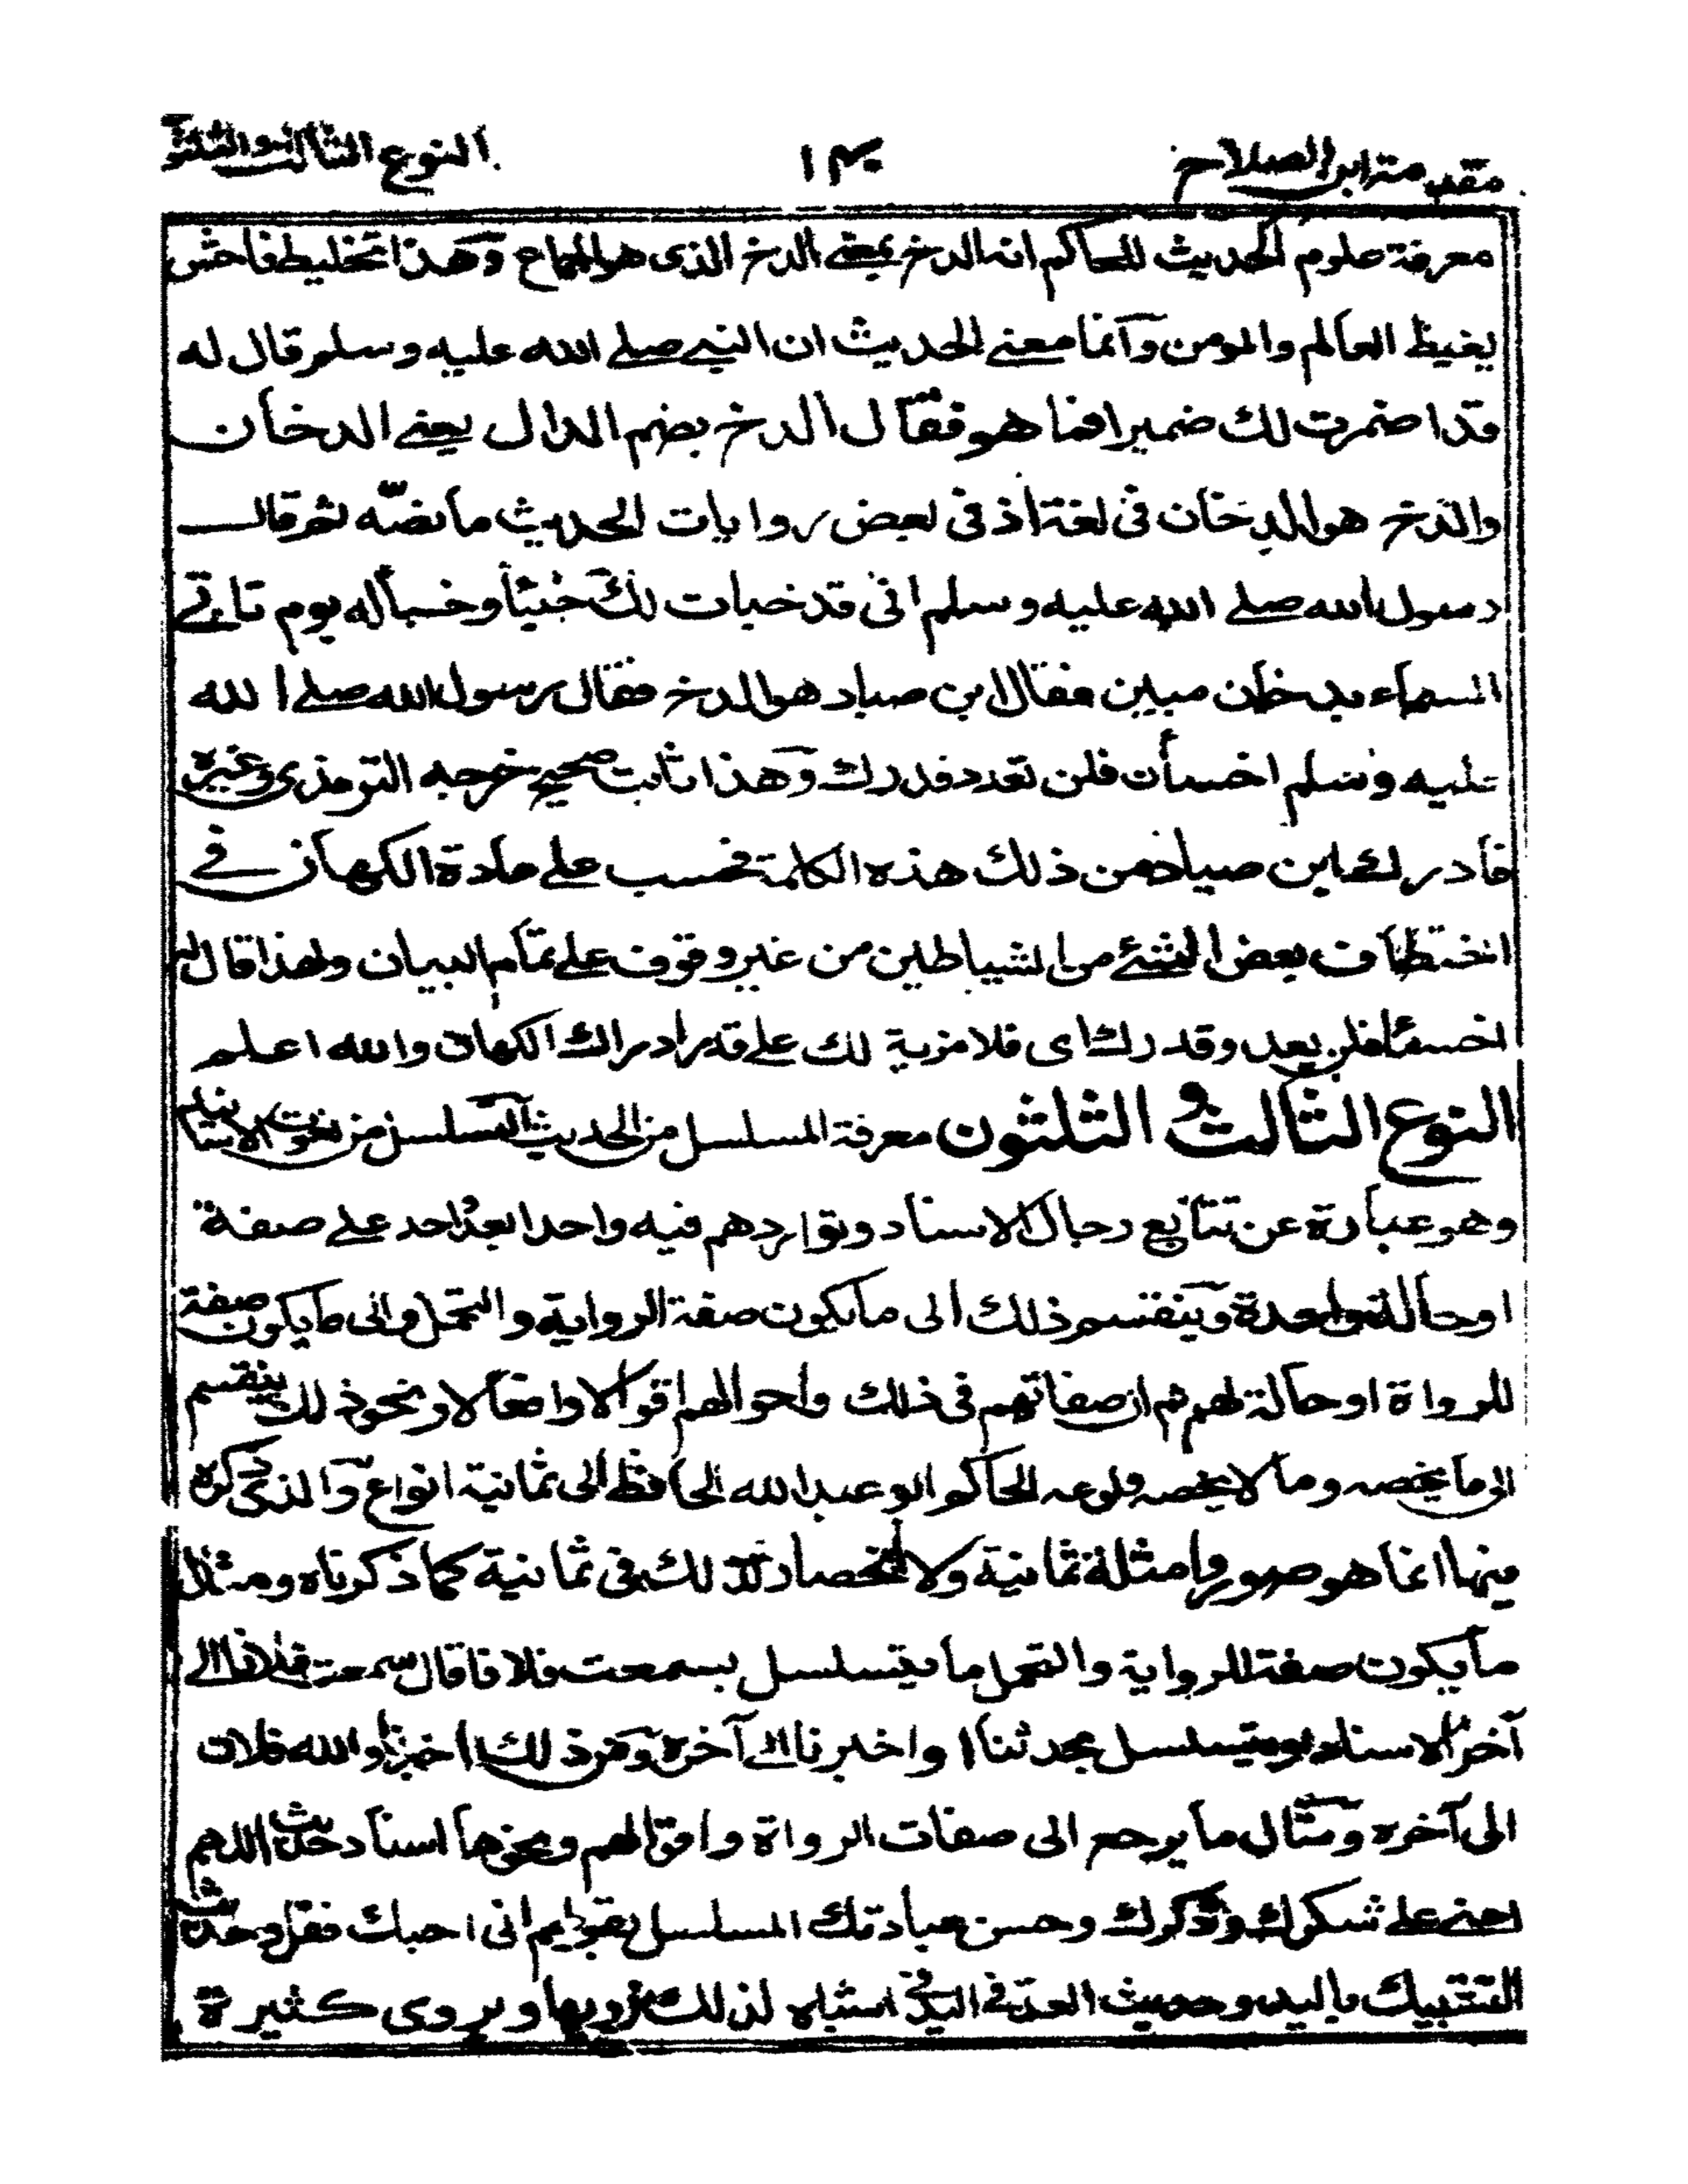 مقدمة ابن الصلاح ١٣٤ النوع الثالث والثلثون
معرفة علوم الحديث للحاكم انه الدخ بمعنى الزخ الذى هو الجماع وهذا تخليط فاحش
يغيظ العالم والمومن وانما معنى الحديث ان النبى صلى الله عليه وسلم قال له
قد اضمرت لك ضميرا فما هو فقال الدخ بضم الدال يعنى الدخان
والدخ هو الدخان فى لغة اذ فى بعض روايات الحديث ما نصّه ثم قال
رسول الله صلى الله عليه وسلم انى قد خبات لك خبيئا وخبأ له يوم تاتى
السماء بدخان مبين فقال ابن صياد هو الدخ فقال رسول الله صلى الله
عليه وسلم اخسأ فلن تعدو قدرك وهذا ثابت صحيح خرجه الترمذى وغيره
فادرك ابن صياد من ذلك هذه الكلمة فحسب على عادة الكهان فى
اختطاف بعض الشئ من الشياطين من غير وقوف على تمام البيان ولهذا قال له
اخسئا فلن يعد وقدرك اى فلا مزية لك على قدر ادراك الكهان والله اعلم
النوع الثالث والثلثون معرفة المسلسل من الحديث التسلسل من نعوت الاسانيد
وهو عبارة عن تتابع رجال الاسناد وتواردهم فيه واحدا بعد واحد على صفة
او حالة واحدة وينقسم ذلك الى ما يكون صفة الرواية والتحمل والى ما يكون صفة
للرواة او حالة لهم ثم ان صفاتهم فى ذلك واحوالهم اقوالا وافعالا ونحو ذلك ينقسم
الى ما يخصه وما لا يخصه ونوعه الحاكم ابو عبد الله الحافظ الى ثمانية انواع والذى ذكره
فيها انما هو صور وامثلة ثمانية ولا انحصار لذلك فى ثمانية كما ذكرناه ومثال
ما يكون صفة للرواية والتحمل ما يتسلسل بسمعت فلانا قال سمعت فلانا الى
آخر الاسناد او يتسلسل بحدثنا او اخبرنا الى آخره ومن ذلك اخبرنا والله فلان
الى آخره ومثال ما يرجع الى صفات الرواة واقوالهم ونحوها اسناد حديث اللهم
اعنى على شكرك وذكرك وحسن عبادتك المسلسل بقولهم انى احبك فقل وحديث
التشبيك باليد وحديث العد فى اليد فى اشباه لذلك نرويها ويروى كثيرة